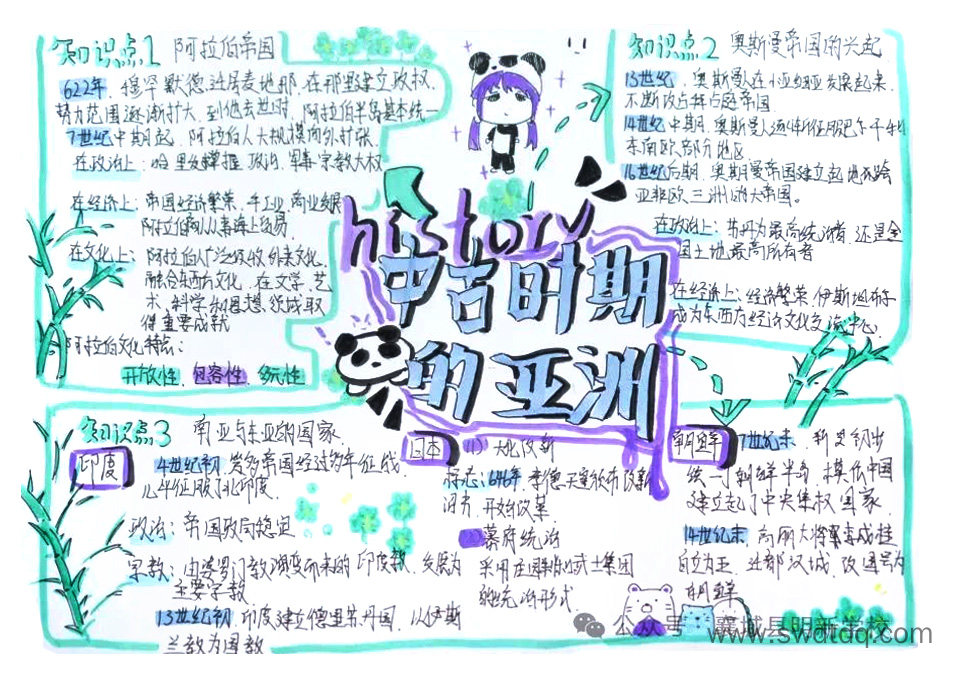 知识点1 阿拉伯帝国
622年，穆罕默德进居麦地那，在那里建立政权，
势力范围逐渐扩大，到他去世时，阿拉伯半岛基本统一
7世纪中期起，阿拉伯人大规模向外扩张
在政治上：哈里发掌握政治、军事、宗教大权
在经济上：帝国经济繁荣，手工业、商业
阿拉伯商人从事海上贸易
在文化上：阿拉伯人广泛吸收外来文化，
融合东西方文化，在文学、艺
术、科学和思想领域取
得重要成就
阿拉伯文化特点：
开放性、包容性、多元性
history
中古时期
的亚洲
知识点2 奥斯曼帝国的兴起
13世纪，奥斯曼在小亚细亚发展起来，
不断攻占拜占庭帝国
14世纪中期，奥斯曼人逐渐征服巴尔干
东南欧部分地区
16世纪后期，奥斯曼帝国建立起地跨
亚非欧三洲的大帝国。
在政治上：苏丹为最高统治者，还是全
国土地最高所有者
在经济上：经济繁荣，伊斯坦布尔
成为东西方经济文化交流中心
知识点3 南亚与东亚的国家
印度
4世纪初，笈多帝国经过多年征战，
几乎征服了北印度.
政治：帝国政局稳定
宗教：由婆罗门教演变而来的印度教，发展为
主要宗教
13世纪初，印度建立德里苏丹国，以伊斯
兰教为国教
日本
(1) 大化改新
标志：646年，孝德天皇颁布改新
诏书，开始改革
幕府统治
采用庄园制和武士集团
统治形式
朝鲜
7世纪末，新罗初步
统一朝鲜半岛，模仿中国
建立起了中央集权国家
14世纪末，高丽大将李成桂
自立为王，迁都汉城，改国号为
朝鲜
公众号 襄城县明新学校
www.swdtdq.com